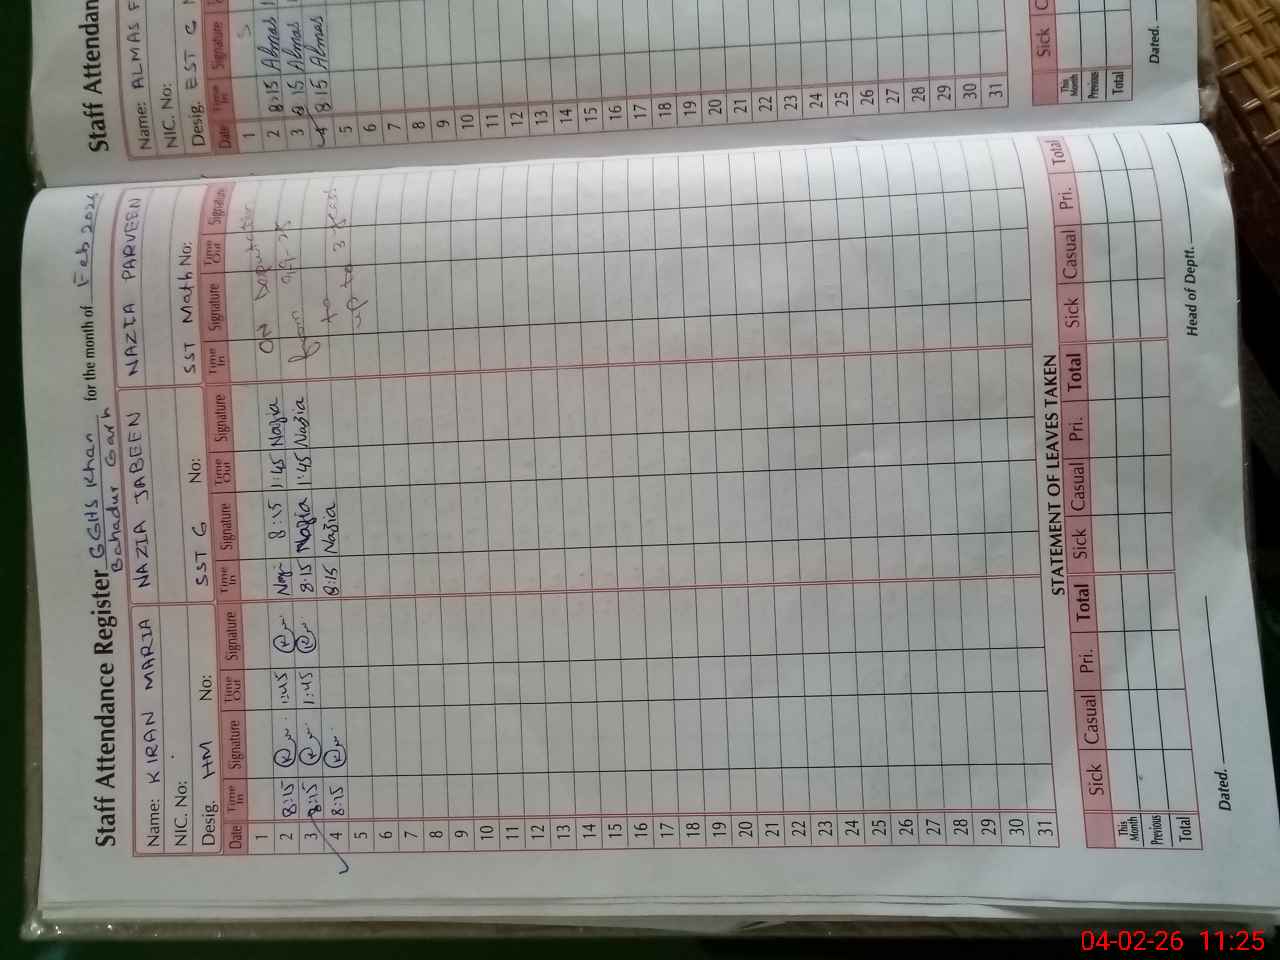 Staff Attendance Register GGHS Khan Bahadur Garh for the month of Feb 2026
Name: KIRAN MARIA NAZIA JABEEN NAZIA PARVEEN
NIC. No:
Desig. HM No: SST G No: SST Math No:
Date Time In Signature Time Out Signature Time In Signature Time Out Signature Time In Signature Time Out Signature
1 ON
2 8:15 1:45 8:15 1:45 Nazia from
3 8:15 1:45 8:15 Nazia 1:45 Nazia to
4 8:15 8:15 Nazia up to 3 years
5
6
7
8
9
10
11
12
13
14
15
16
17
18
19
20
21
22
23
24
25
26
27
28
29
30
31
STATEMENT OF LEAVES TAKEN
Sick Casual Pri. Total Sick Casual Pri. Total Sick Casual Pri. Total
This Month
Previous
Total
Dated. Head of Deptt.
Staff Attendan
Name: ALMAS F
NIC. No:
Desig. EST G
Date Time In Signature
1
2 8:15 Almas
3 8:15 Almas
4 8:15 Almas
5
6
7
8
9
10
11
12
13
14
15
16
17
18
19
20
21
22
23
24
25
26
27
28
29
30
31
Sick
This Month
Previous
Total
Dated.
04-02-26 11:25